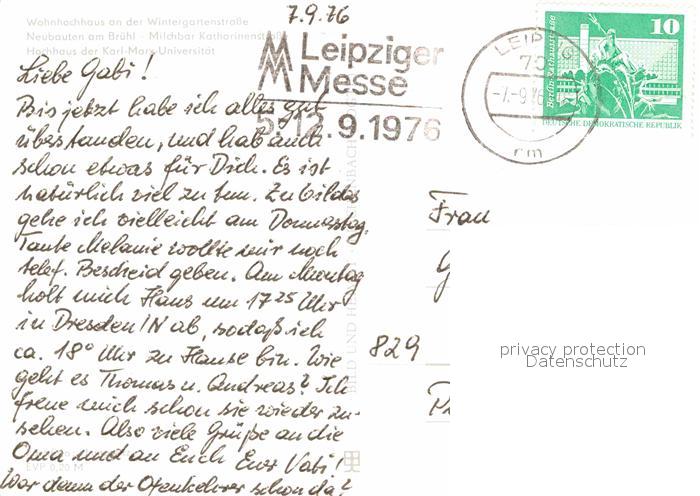 7.9.76
Wohnhochhaus an der Wintergartenstraße
Neubauten am Brühl - Milchbar Katharinenstraße
Hochhaus der Karl-Marx-Universität
Leipziger
Messe
5.-12.9.1976
LEIPZIG
-7.-9.76
rm
10
Berlin, Rathausstraße
DEUTSCHE DEMOKRATISCHE REPUBLIK
Liebe Gabi!
Bis jetzt habe ich alles gut
überstanden, und hab auch
schon etwas für Dich. Es ist
natürlich viel zu tun. Zu Gildas
gehe ich vielleicht am Donnerstag,
Tante Melanie wollte mir noch
telef. Bescheid geben. Am Montag
holt mich Hans um 17 25 Uhr
in Dresden/N ab, sodaß ich
ca. 18° Uhr zu Hause bin. Wie
geht es Thomas u. Andreas? Ich
freue mich schon sie wieder zu-
sehen. Also viele Grüße an die
Oma und an Euch Euer Vati!
War denn der Ofenkehrer schon da?
EVP 0,20 M
BILD UND HEIMAT
Frau
829
privacy protection
Datenschutz